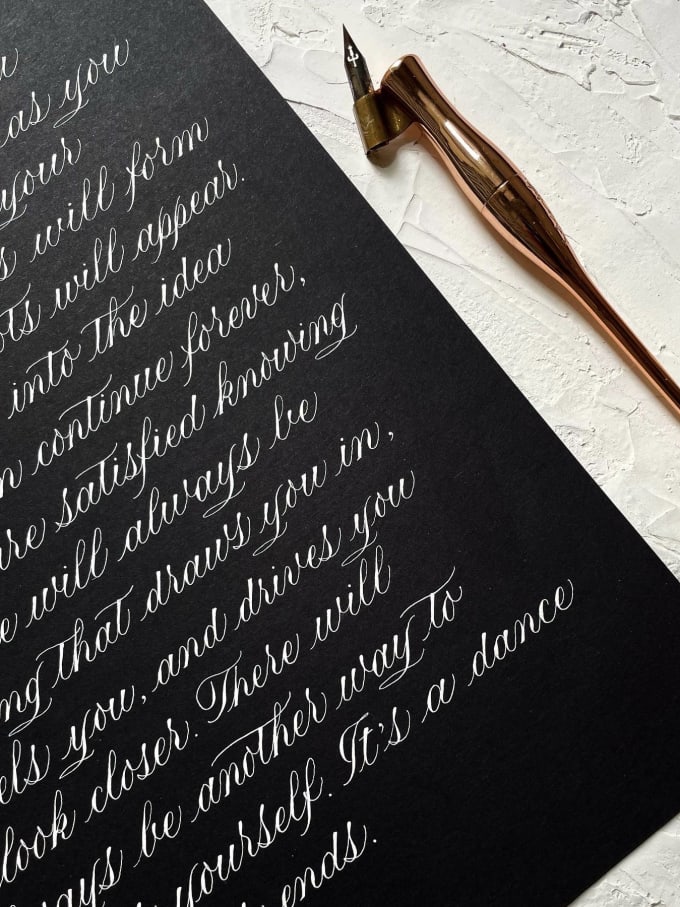 as you
your
will form
will appear.
into the idea
continue forever,
satisfied knowing
will always be
that draws you in,
you, and drives you
look closer. There will
be another way to
yourself. It's a dance
ends.